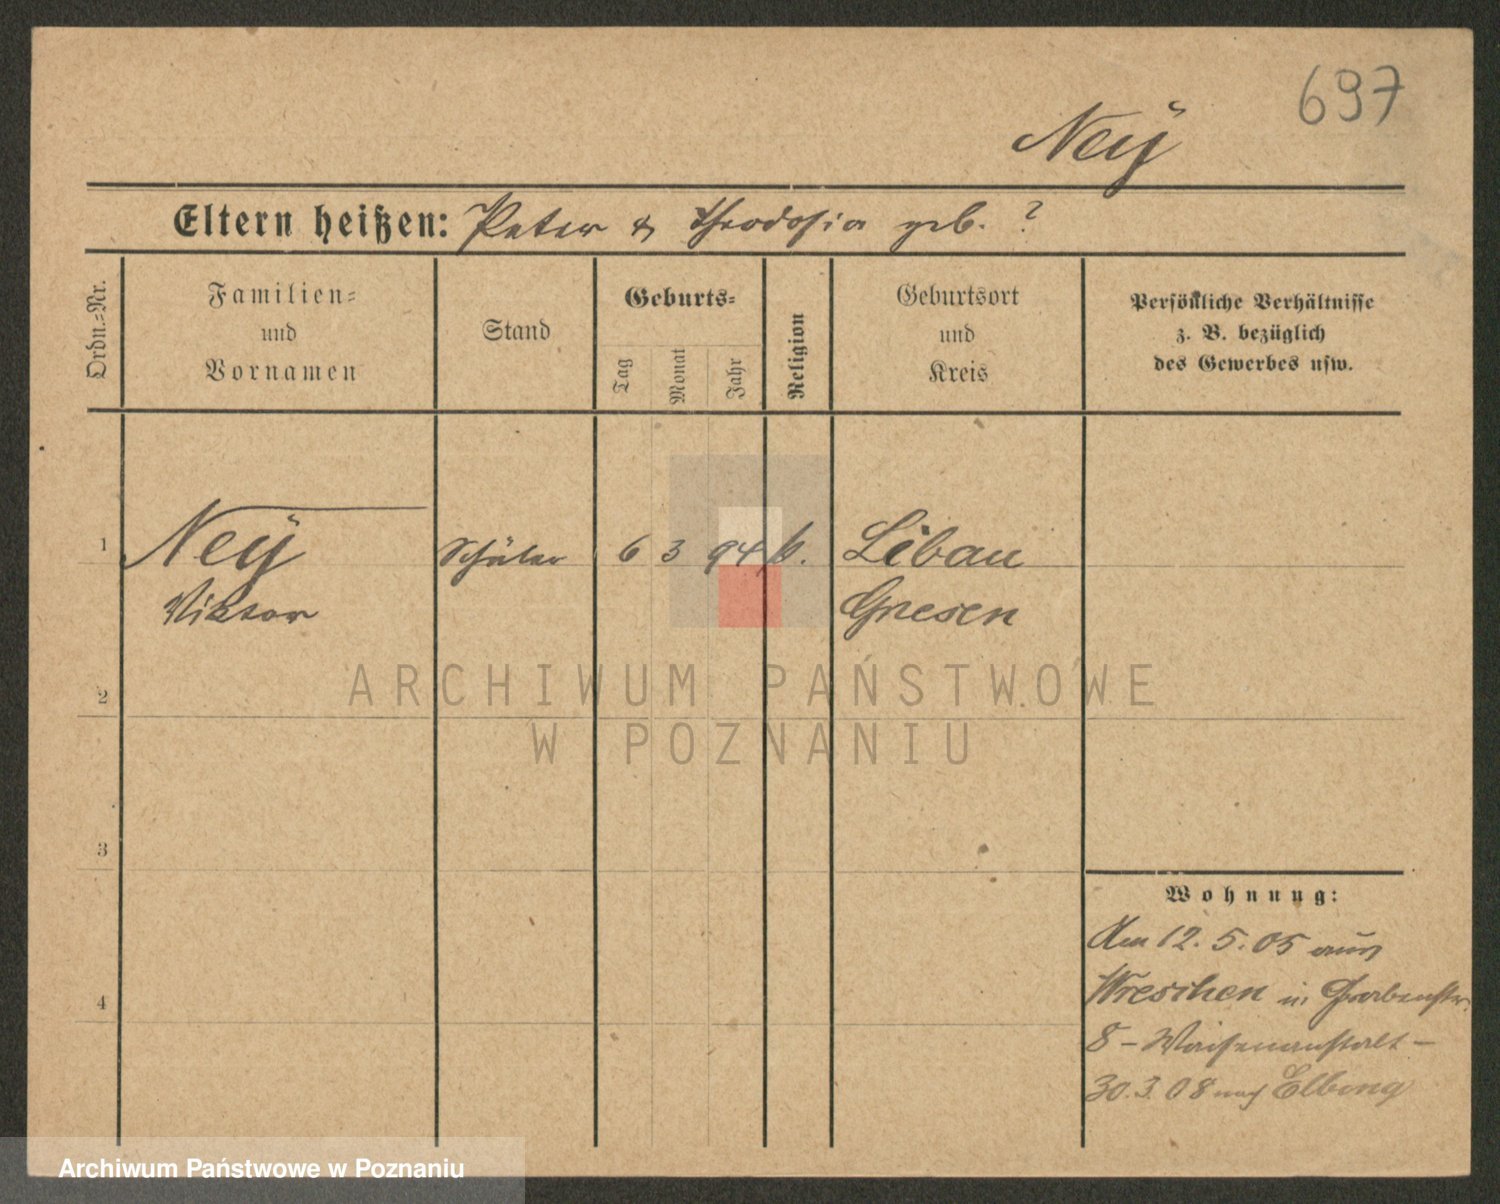 697
Neÿ
Eltern heißen: Peter & Theodosia geb. ?
Ordn.=Nr.
Familien=
und
Vornamen
Stand
Geburts=
Tag
Monat
Jahr
Religion
Geburtsort
und
Kreis
Persönliche Verhältnisse
z. B. bezüglich
des Gewerbes usw.
1 Neÿ Schüler 6 3 94 k. Libau
Viktor Gnesen
ARCHIWUM PAŃSTWOWE
W POZNANIU
2
3
4
Wohnung:
Am 12.5.05 aus
Wreschen in Grabenstr.
8 - Waisenanstalt -
30.3.08 nach Elbing
Archiwum Państwowe w Poznaniu